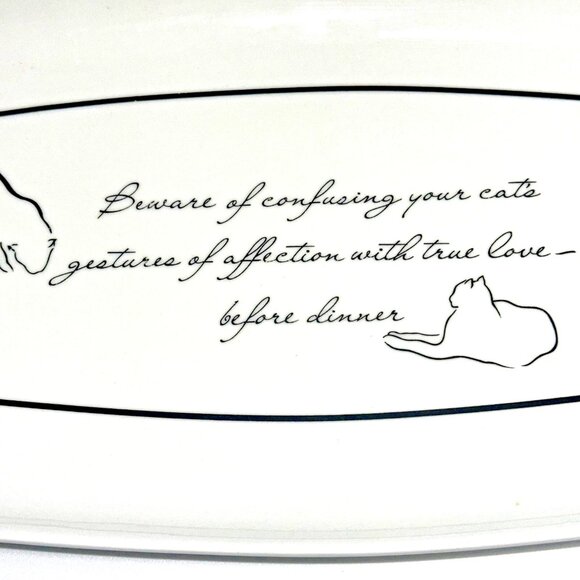 Beware of confusing your cat's
gestures of affection with true love –
before dinner